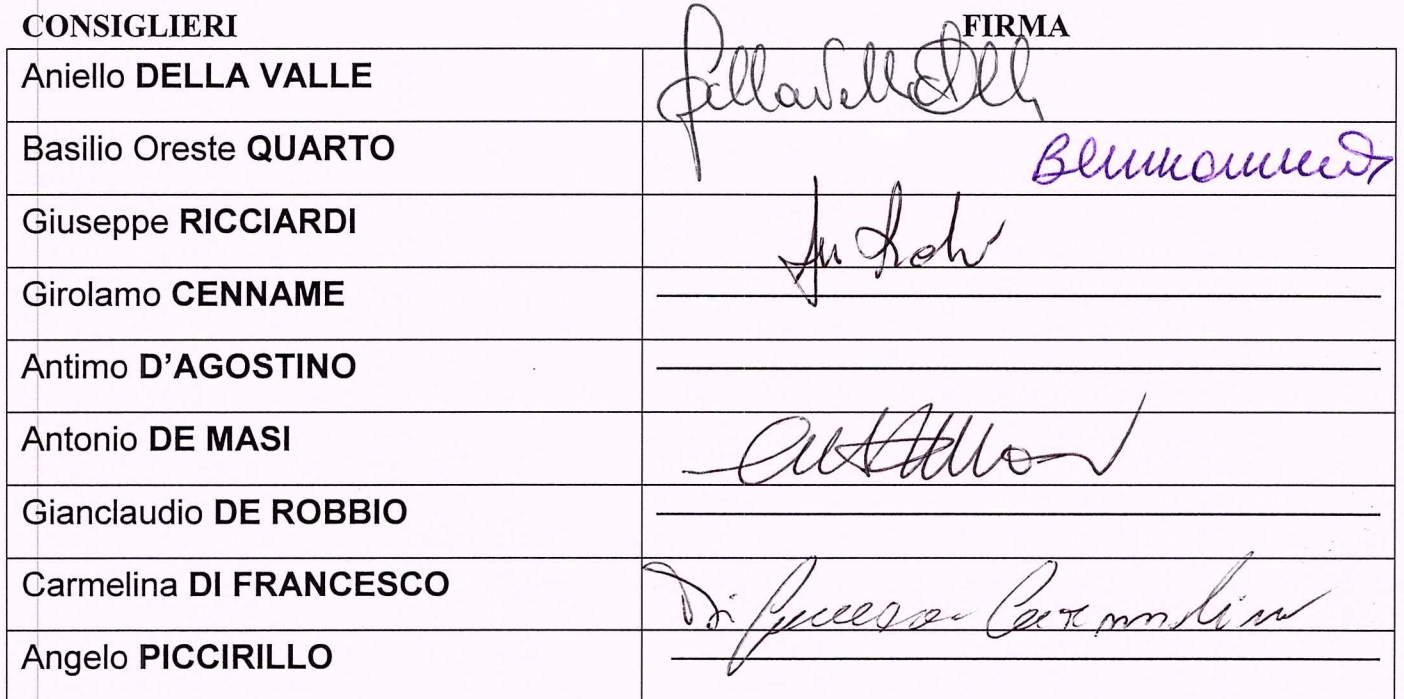 CONSIGLIERI FIRMA
Aniello DELLA VALLE
Basilio Oreste QUARTO
Giuseppe RICCIARDI
Girolamo CENNAME
Antimo D’AGOSTINO
Antonio DE MASI
Gianclaudio DE ROBBIO
Carmelina DI FRANCESCO Di Francesco Carmelina
Angelo PICCIRILLO